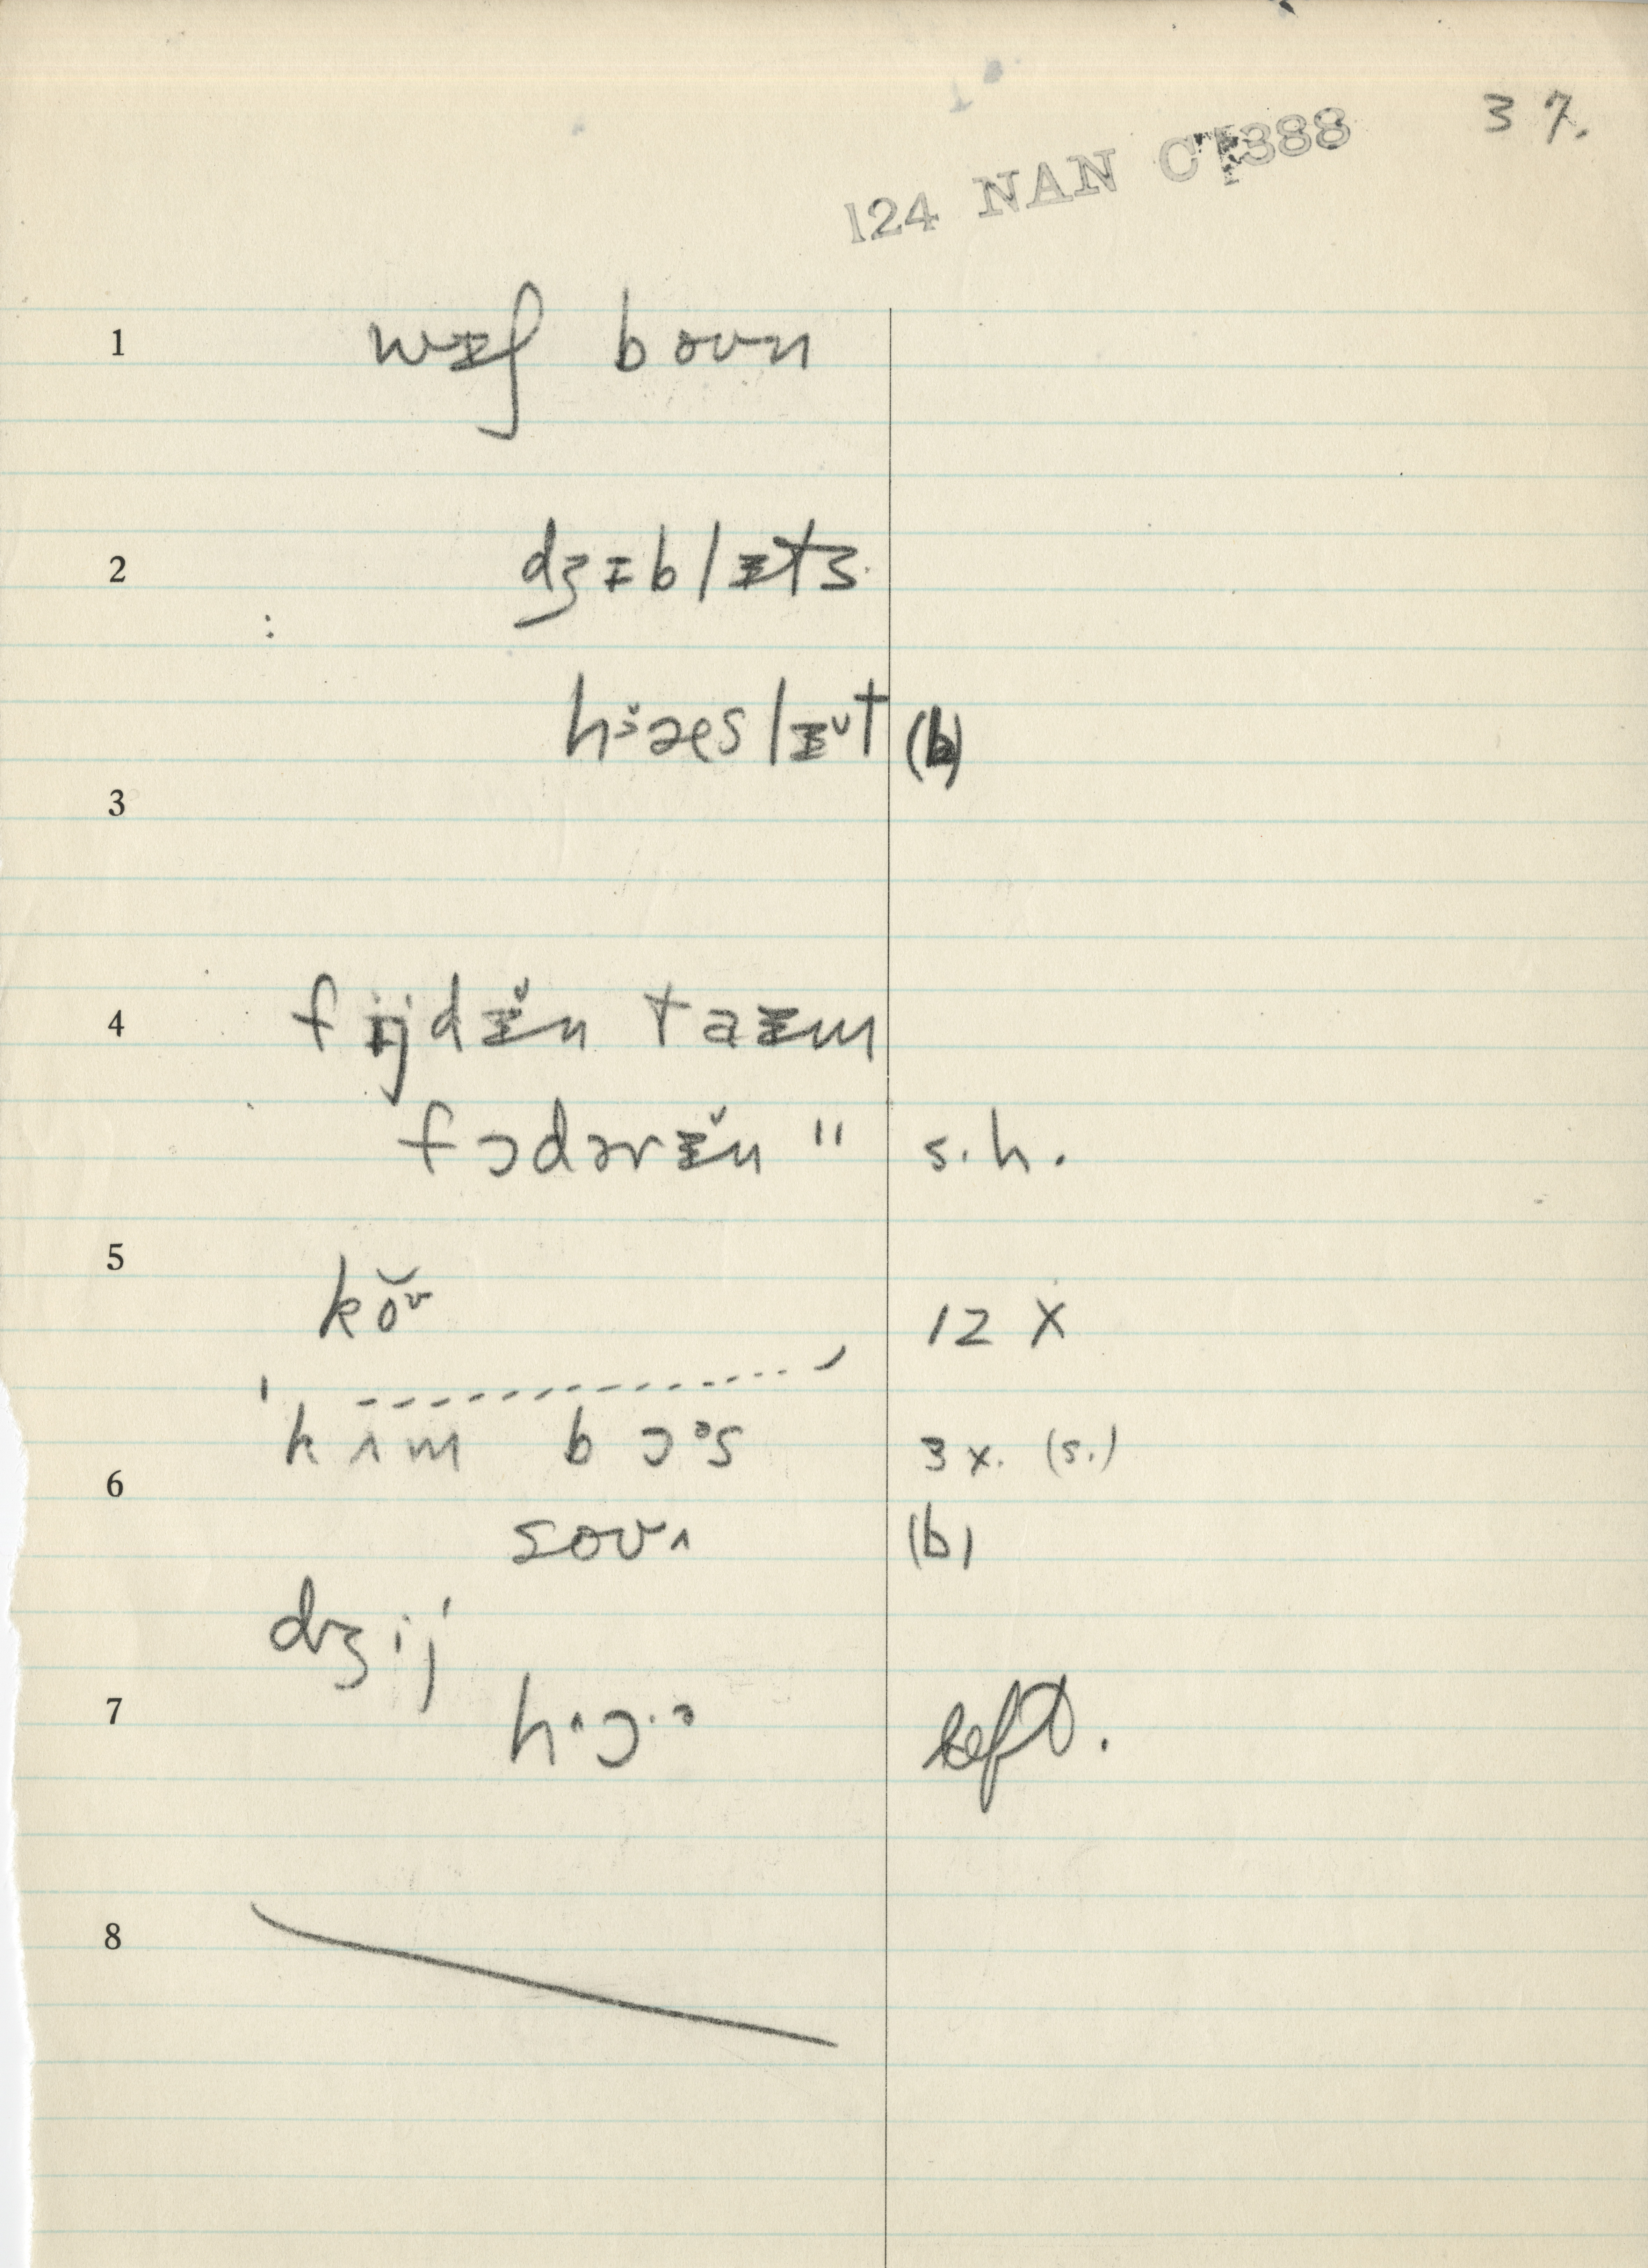 37.
124 NAN CT388
1 wɪʃ boʊn
2 dʒɪblɪts
hɜæslɪ̆t (b)
3
4 fijdɪ̆n taɪm
fɔdərɪ̆n " s.h.
5
kŏʊ 12 X
'kʌm bɔᵊs 3 x. (s.)
6
soʊʌ (b)
dʒij
7 hʌɔ·ə left.
8